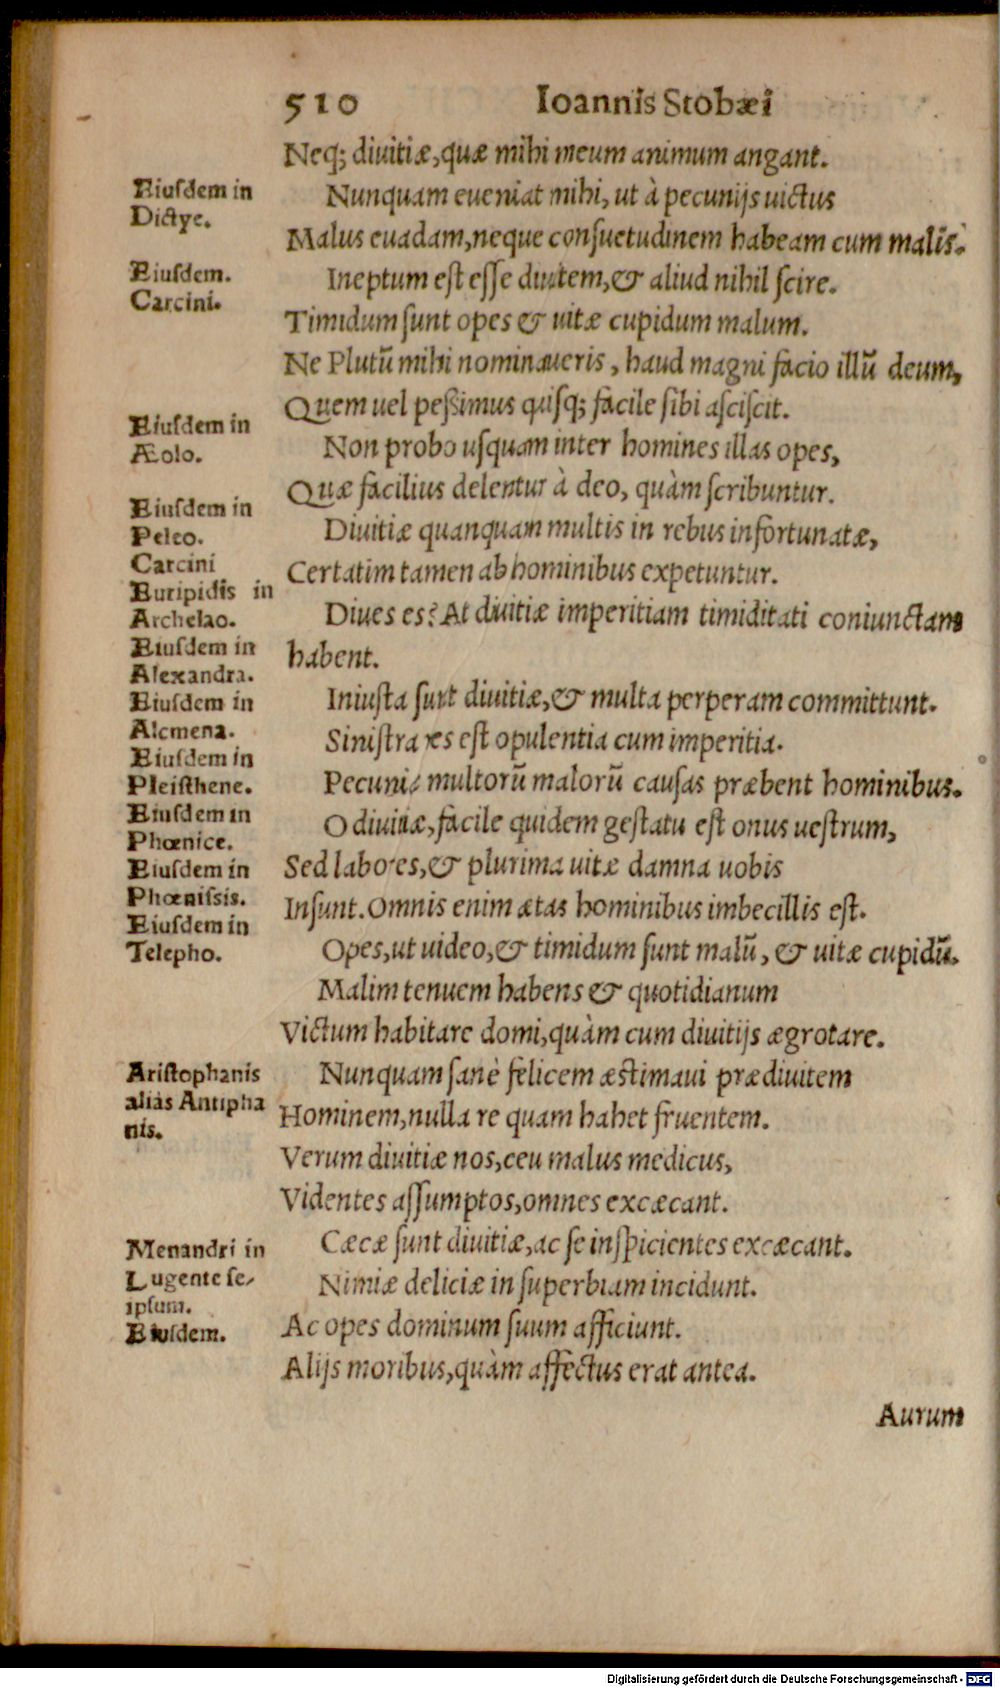 510 Ioannis Stobæi
Neq; diuitiæ, quæ mihi meum animum angant.
Eiusdem in
Dictye.
Nunquam eueniat mihi, ut à pecunijs uictus
Malus euadam, neque consuetudinem habeam cum malis.
Eiusdem.
Carcini.
Ineptum est esse diuitem, & aliud nihil scire.
Timidum sunt opes & uitæ cupidum malum.
Ne Plutũ mihi nominaueris, haud magni facio illũ deum,
Quem uel pessimus quisq; facile sibi asciscit.
Eiusdem in
Æolo.
Non probo usquam inter homines illas opes,
Quæ facilius delentur à deo, quàm scribuntur.
Eiusdem in
Peleo.
Carcini
Diuitiæ quanquam multis in rebus infortunatæ,
Certatim tamen ab hominibus expetuntur.
Euripidis in
Archelao.
Diues es? At diuitiæ imperitiam timiditati coniunctam
habent.
Eiusdem in
Alexandra.
Eiusdem in
Alcmena.
Iniusta sunt diuitiæ, & multa perperam committunt.
Sinistra res est opulentia cum imperitia.
Eiusdem in
Pleisthene.
Pecuniæ multorũ malorũ causas præbent hominibus.
Eiusdem in
Phœnice.
O diuitiæ, facile quidem gestatu est onus uestrum,
Sed labores, & plurima uitæ damna uobis
Insunt. Omnis enim ætas hominibus imbecillis est.
Eiusdem in
Phœnissis.
Eiusdem in
Telepho.
Opes, ut uideo, & timidum sunt malũ, & uitæ cupidũ.
Malim tenuem habens & quotidianum
Victum habitare domi, quàm cum diuitijs ægrotare.
Aristophanis
aliàs Antipha
nis.
Nunquam sanè felicem æstimaui prædiuitem
Hominem, nulla re quam habet fruentem.
Verum diuitiæ nos, ceu malus medicus,
Videntes assumptos, omnes excæcant.
Menandri in
Lugente se-
ipsum.
Eiusdem.
Cæcæ sunt diuitiæ, ac se inspicientes excæcant.
Nimiæ deliciæ in superbiam incidunt.
Ac opes dominum suum afficiunt.
Alijs moribus, quàm affectus erat antea.
Aurum
Digitalisierung gefördert durch die Deutsche Forschungsgemeinschaft - DFG